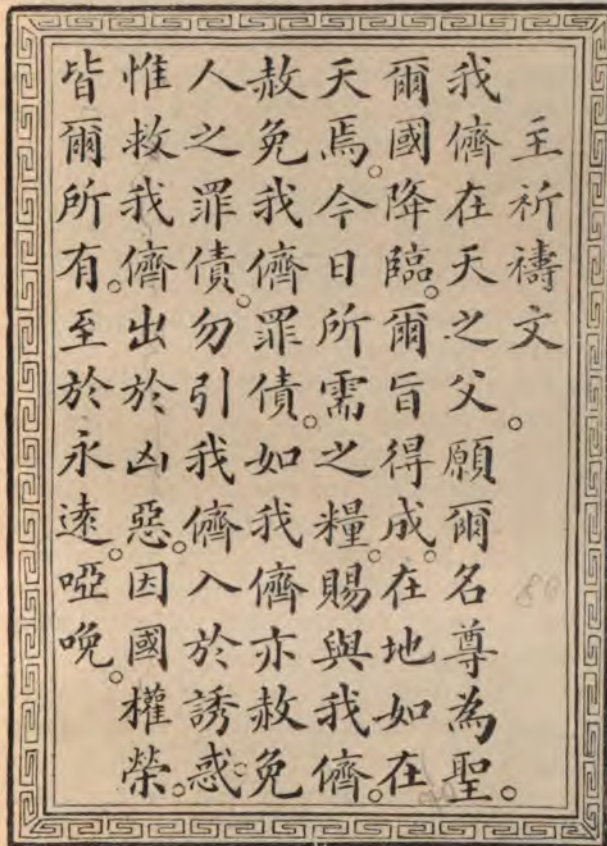 主祈禱文
我儕在天之父。願爾名尊為聖。
爾國降臨。爾旨得成。在地如在
天焉。今日所需之糧。賜與我儕。
赦免我儕罪債。如我儕亦赦免
人之罪債。勿引我儕入於誘惑。
惟救我儕出於凶惡。因國權榮。
皆爾所有。至於永遠。啞唲。
80